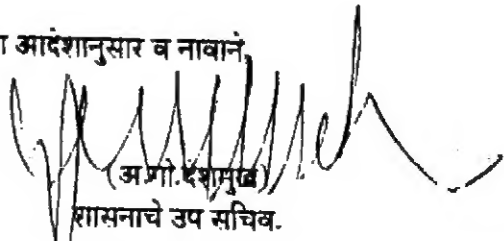 आदेशानुसार व नावाने,
(अ.गो.देशमुख)
शासनाचे उप सचिव.